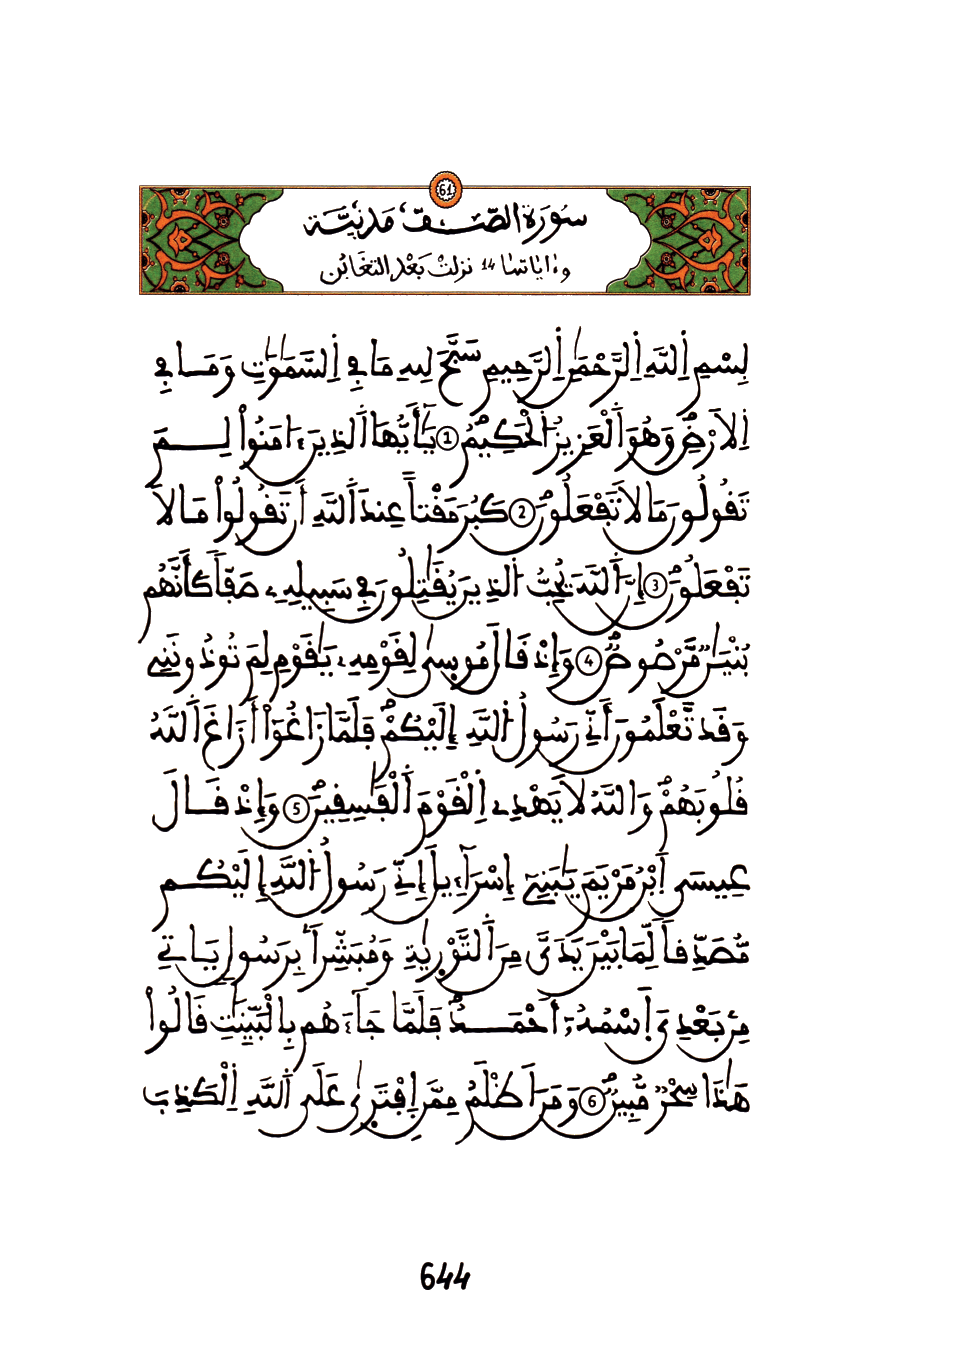 61
سُورَةُ الصَّفِّ مَدَنِيَّة
وءاياتها 14 نزلت بَعْدَ التغَابُن
بِسْمِ اِللَّهِ اِلرَّحْمَٰنِ اِلرَّحِيمِ سَبَّحَ لِلهِ مَا فِے اِلسَّمَٰوَٰتِ وَمَا فِے
اِلَارْضِ وَهُوَ اَلْعَزِيزُ اُلْحَكِيمُ 1 يَٰٓأَيُّهَا اَلذِينَ ءَامَنُواْ لِمَ
تَقُولُونَ مَا لَا تَفْعَلُونَ 2 كَبُرَ مَقْتاً عِندَ اَللَّهِ أَن تَقُولُواْ مَا لَا
تَفْعَلُونَ 3 إِنَّ اَللَّهَ يُحِبُّ اُلذِينَ يُقَٰتِلُونَ فِے سَبِيلِهِۦ صَفّاٗ كَأَنَّهُم
بُنْيَٰنٞ مَّرْصُوصٞ 4 وَإِذْ قَالَ مُوسَىٰ لِقَوْمِهِۦ يَٰقَوْمِ لِمَ تُوذُونَنِے
وَقَد تَّعْلَمُونَ أَنِّے رَسُولُ اُللَّهِ إِلَيْكُمْ فَلَمَّا زَاغُوٓاْ أَزَاغَ اَللَّهُ
قُلُوبَهُمْ وَاللَّهُ لَا يَهْدِے اِلْقَوْمَ اَلْفَٰسِقِينَ 5 وَإِذْ قَالَ
عِيسَى اَبْنُ مَرْيَمَ يَٰبَنِےٓ إِسْرَآءِيلَ إِنِّے رَسُولُ اُللَّهِ إِلَيْكُم
مُّصَدِّقاٗ لِّمَا بَيْنَ يَدَيَّ مِنَ اَلتَّوْر۪يٰةِ وَمُبَشِّراَۢ بِرَسُولٖ يَاتِے
مِنۢ بَعْدِيَ اَسْمُهُۥٓ أَحْمَدُ فَلَمَّا جَآءَهُم بِالْبَيِّنَٰتِ قَالُواْ
هَٰذَا سِحْرٞ مُّبِينٞ 6 وَمَنَ اَظْلَمُ مِمَّنِ اِفْتَر۪ىٰ عَلَى اَللَّهِ اِلْكَذِبَ
644